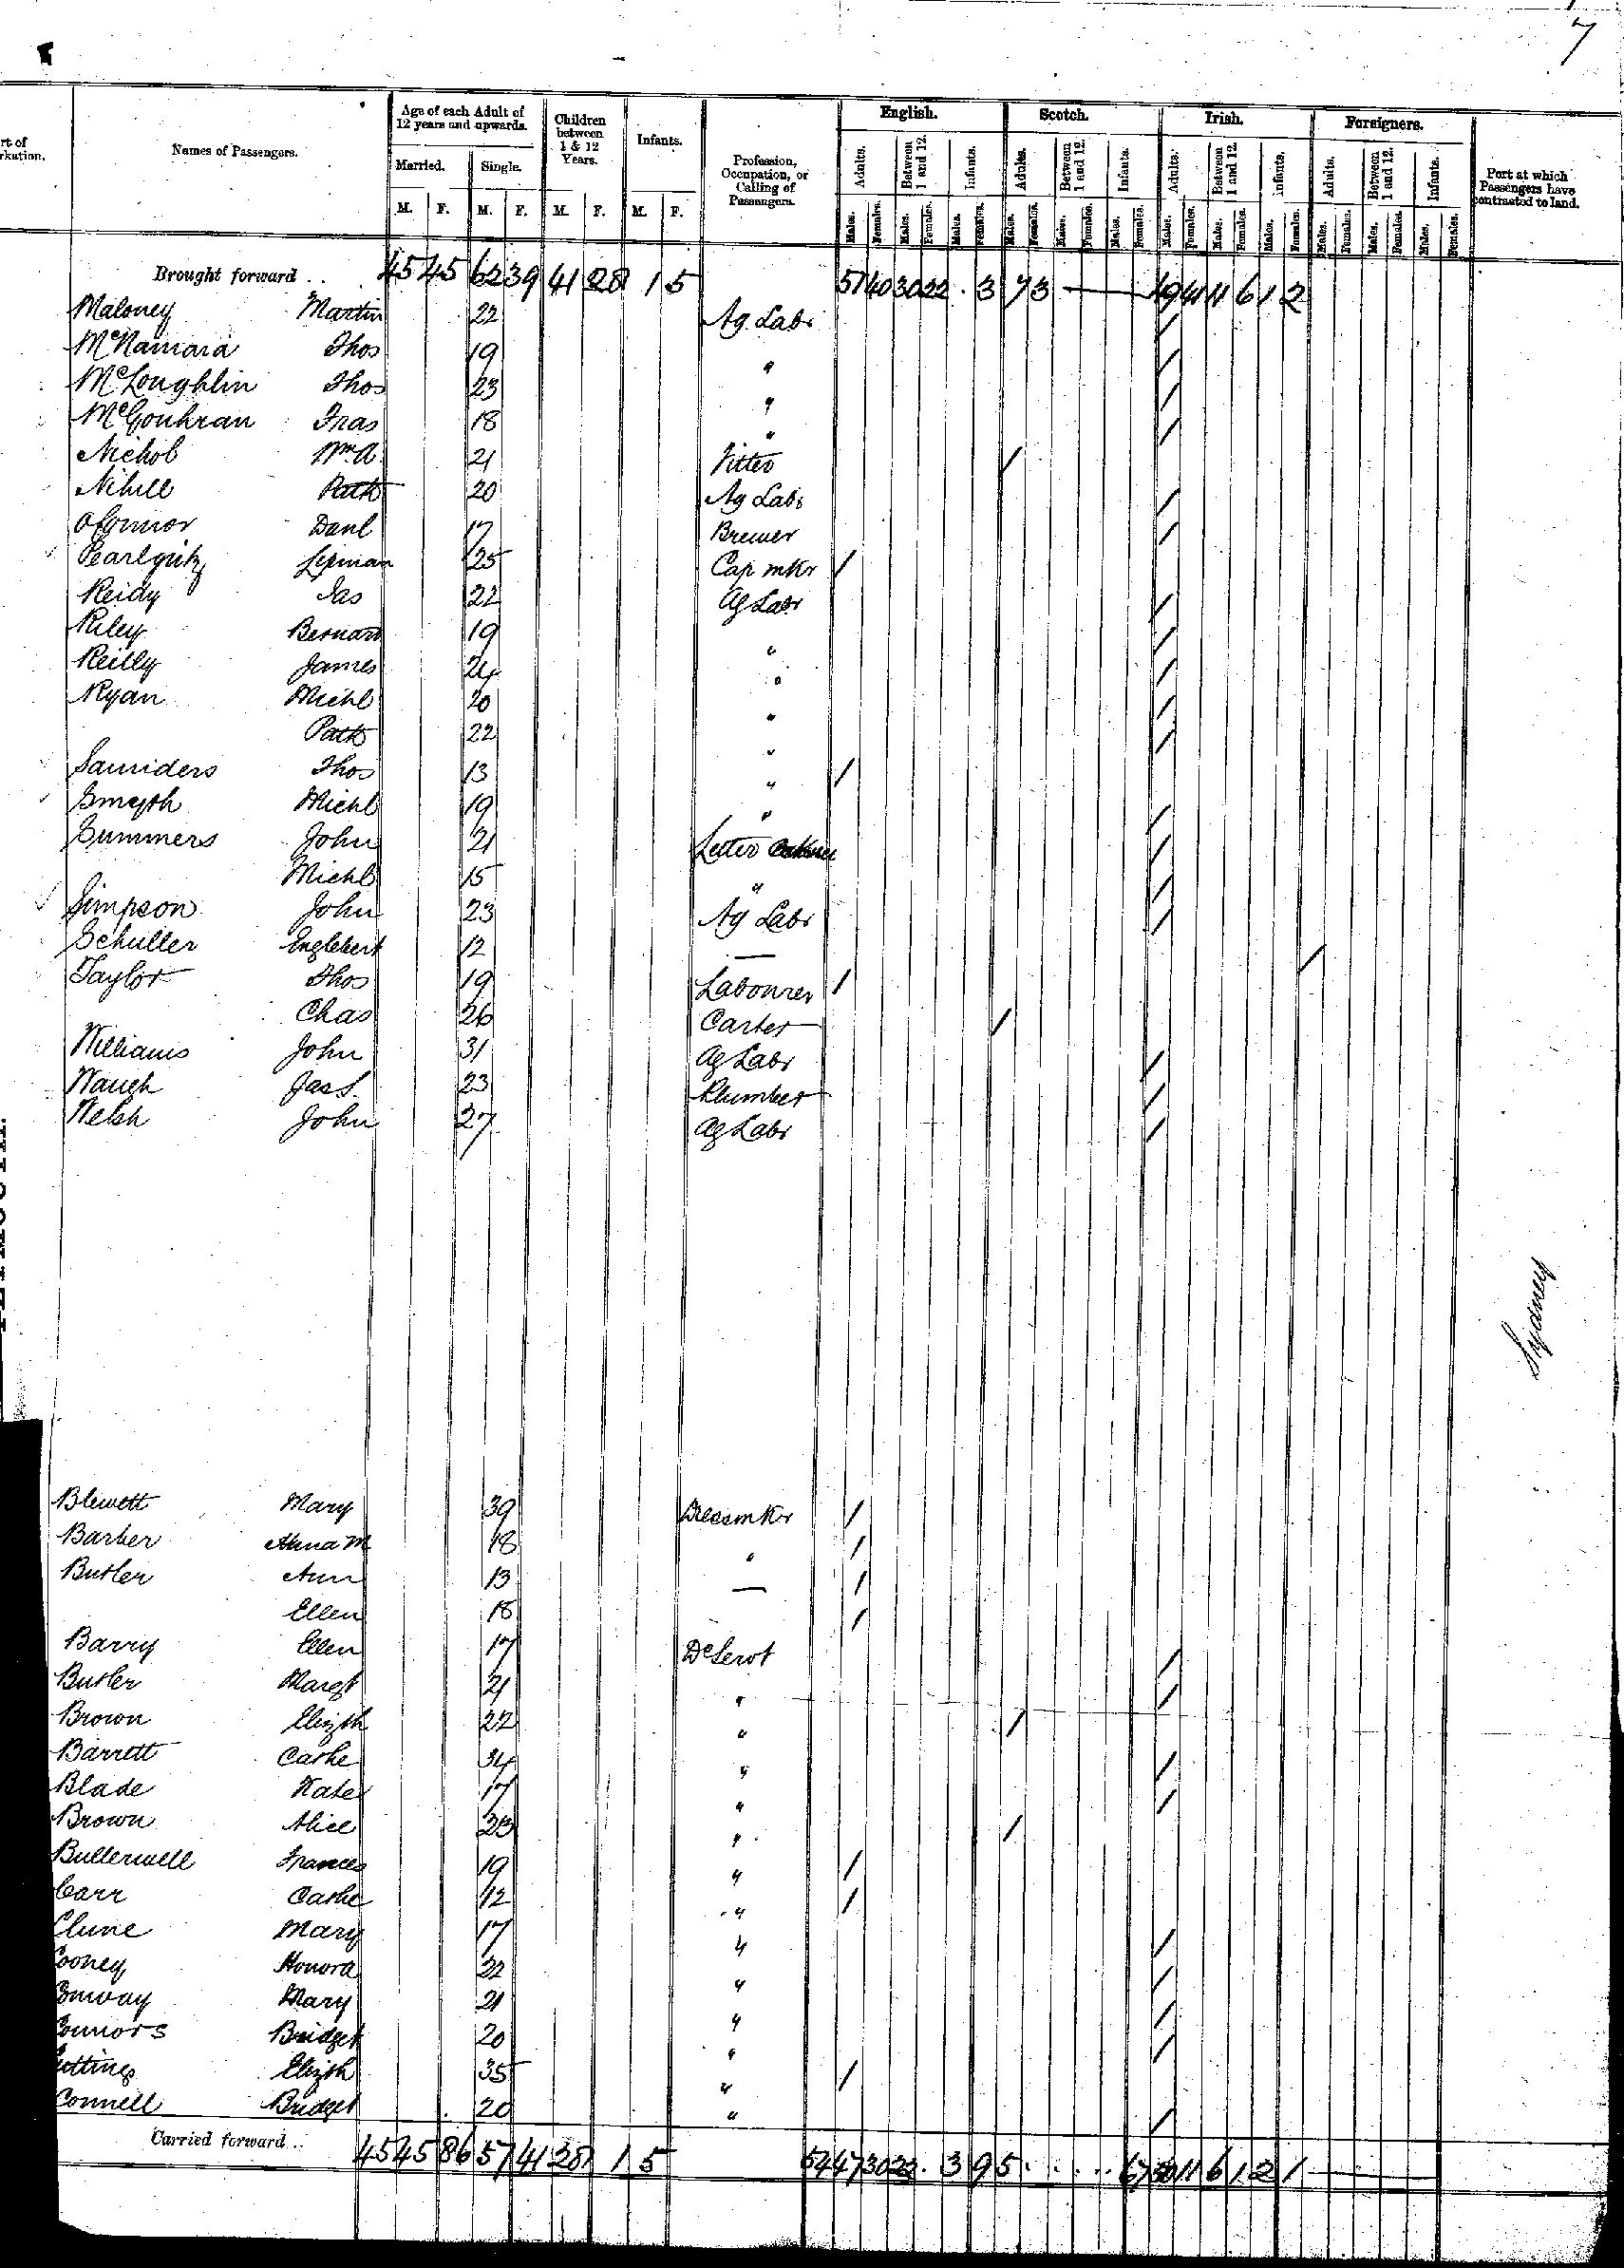 7
rt of
rkation.
Names of Passengers.
Age of each Adult of 12 years and upwards.
Married.
Single.
M. F. M. F.
Children between 1 & 12 Years.
M. F.
Infants.
M. F.
Profession, Occupation, or Calling of Passengers.
English.
Scotch.
Irish.
Foreigners.
Adults. Between 1 and 12. Infants. Adults. Between 1 and 12. Infants. Adults. Between 1 and 12. Infants. Adults. Between 1 and 12. Infants.
Males. Females. Males. Females. Males. Females. Males. Females. Males. Females. Males. Females. Males. Females. Males. Females. Males. Females. Males. Females. Males. Females. Males. Females.
Port at which Passengers have contracted to land.
Brought forward .. 45 45 62 39 41 28 1 5 51 40 30 22 . 3 7 3 — 49 41 11 6 1 2
Maloney Martin 22 Ag. Labr /
McNamara Thos 19 " /
McLoughlin Thos 23 " /
McGouhran Fras 18 " /
Nichol Wm A. 21 Fitter /
Nihill Patk 20 Ag Labr /
OConnor Danl 17 Brewer /
Lipman 25 Cap mKr /
Reidy Jas 22 Ag Labr /
Riley Bernard 19 " /
Reilly James 24 " /
Ryan Michl 20 " /
Patk 22 " /
Saunders Thos 13 " /
Smyth Michl 19 " /
Summers John 21 Letter /
Michl 15 " /
Simpson John 23 Ag Labr /
Schuller Englebert 12 — /
Taylor Thos 19 Labourer /
Chas 26 Carter /
Williams John 31 Ag Labr /
Waugh Jas S. 23 Plumber /
Welsh John 27 Ag Labr /
Sydney
Blewett Mary 39 DressmKr /
Barber Anna M 18 " /
Butler Ann 13 — /
Ellen 18 /
Barry Ellen 17 Dc Servt /
Butler Margt 21 " /
Brown Elizth 22 " /
Barrett Cathe 34 " /
Blade Kate 17 " /
Brown Alice 23 " /
Bullerwell Frances 19 " /
Carr Cathe 12 " /
Clune Mary 17 " /
ooney Honora 32 " /
onway Mary 21 " /
onnors Bridget 20 " /
utting Elizth 35 " /
Connell Bridget 20 " /
Carried forward .. 45 45 86 57 41 28 1 5 54 47 30 22 . 3 9 5 . . . . 67 50 11 6 1 2 1 —